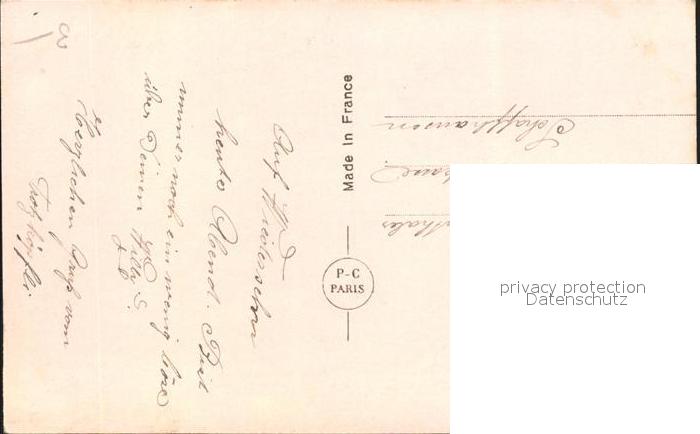 Auf Wiedersehn
heute Abend. Bist
immer noch ein wenig böse
über Deinen Willy?
Herzlichen Gruß vom
Trotzköpfli.
Made In France
P-C
PARIS
Schaffhausen
privacy protection
Datenschutz